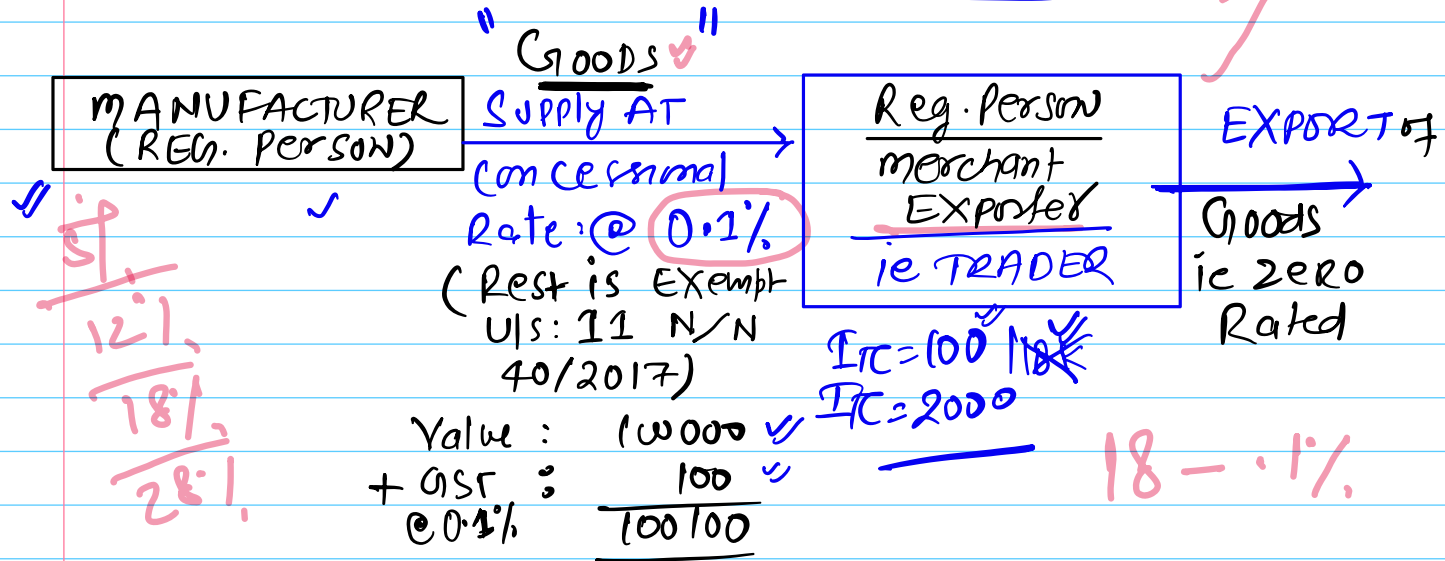 " GOODS "
MANUFACTURER
(REG. PERSON)
Supply AT
Concessional
Rate: @ 0.1%
(Rest is Exempt
U/s: 11 N/N
40/2017)
Reg. Person
merchant
Exporter
ie TRADER
EXPORT of
Goods
ie Zero
Rated
5%
12%
18%
28%
ITC = 100
ITC = 2000
Value : 100000
+ GST : 100
@ 0.1%
100100
18 - .1%